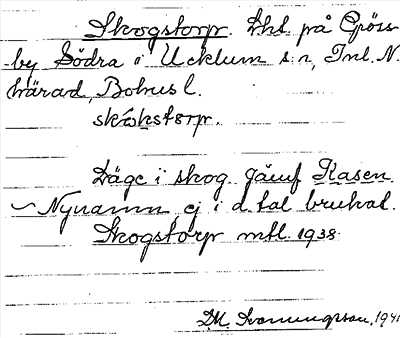 Skogstorp. Lht på Gröss-
by Södra i Ucklum sn, Inl. N.
härad, Bohus l.
skókstorp.
Läge i skog. Jämf Kasen
— Nynamn ej i d. tal brukat.
Skogstorp mtl. 1938.
1941